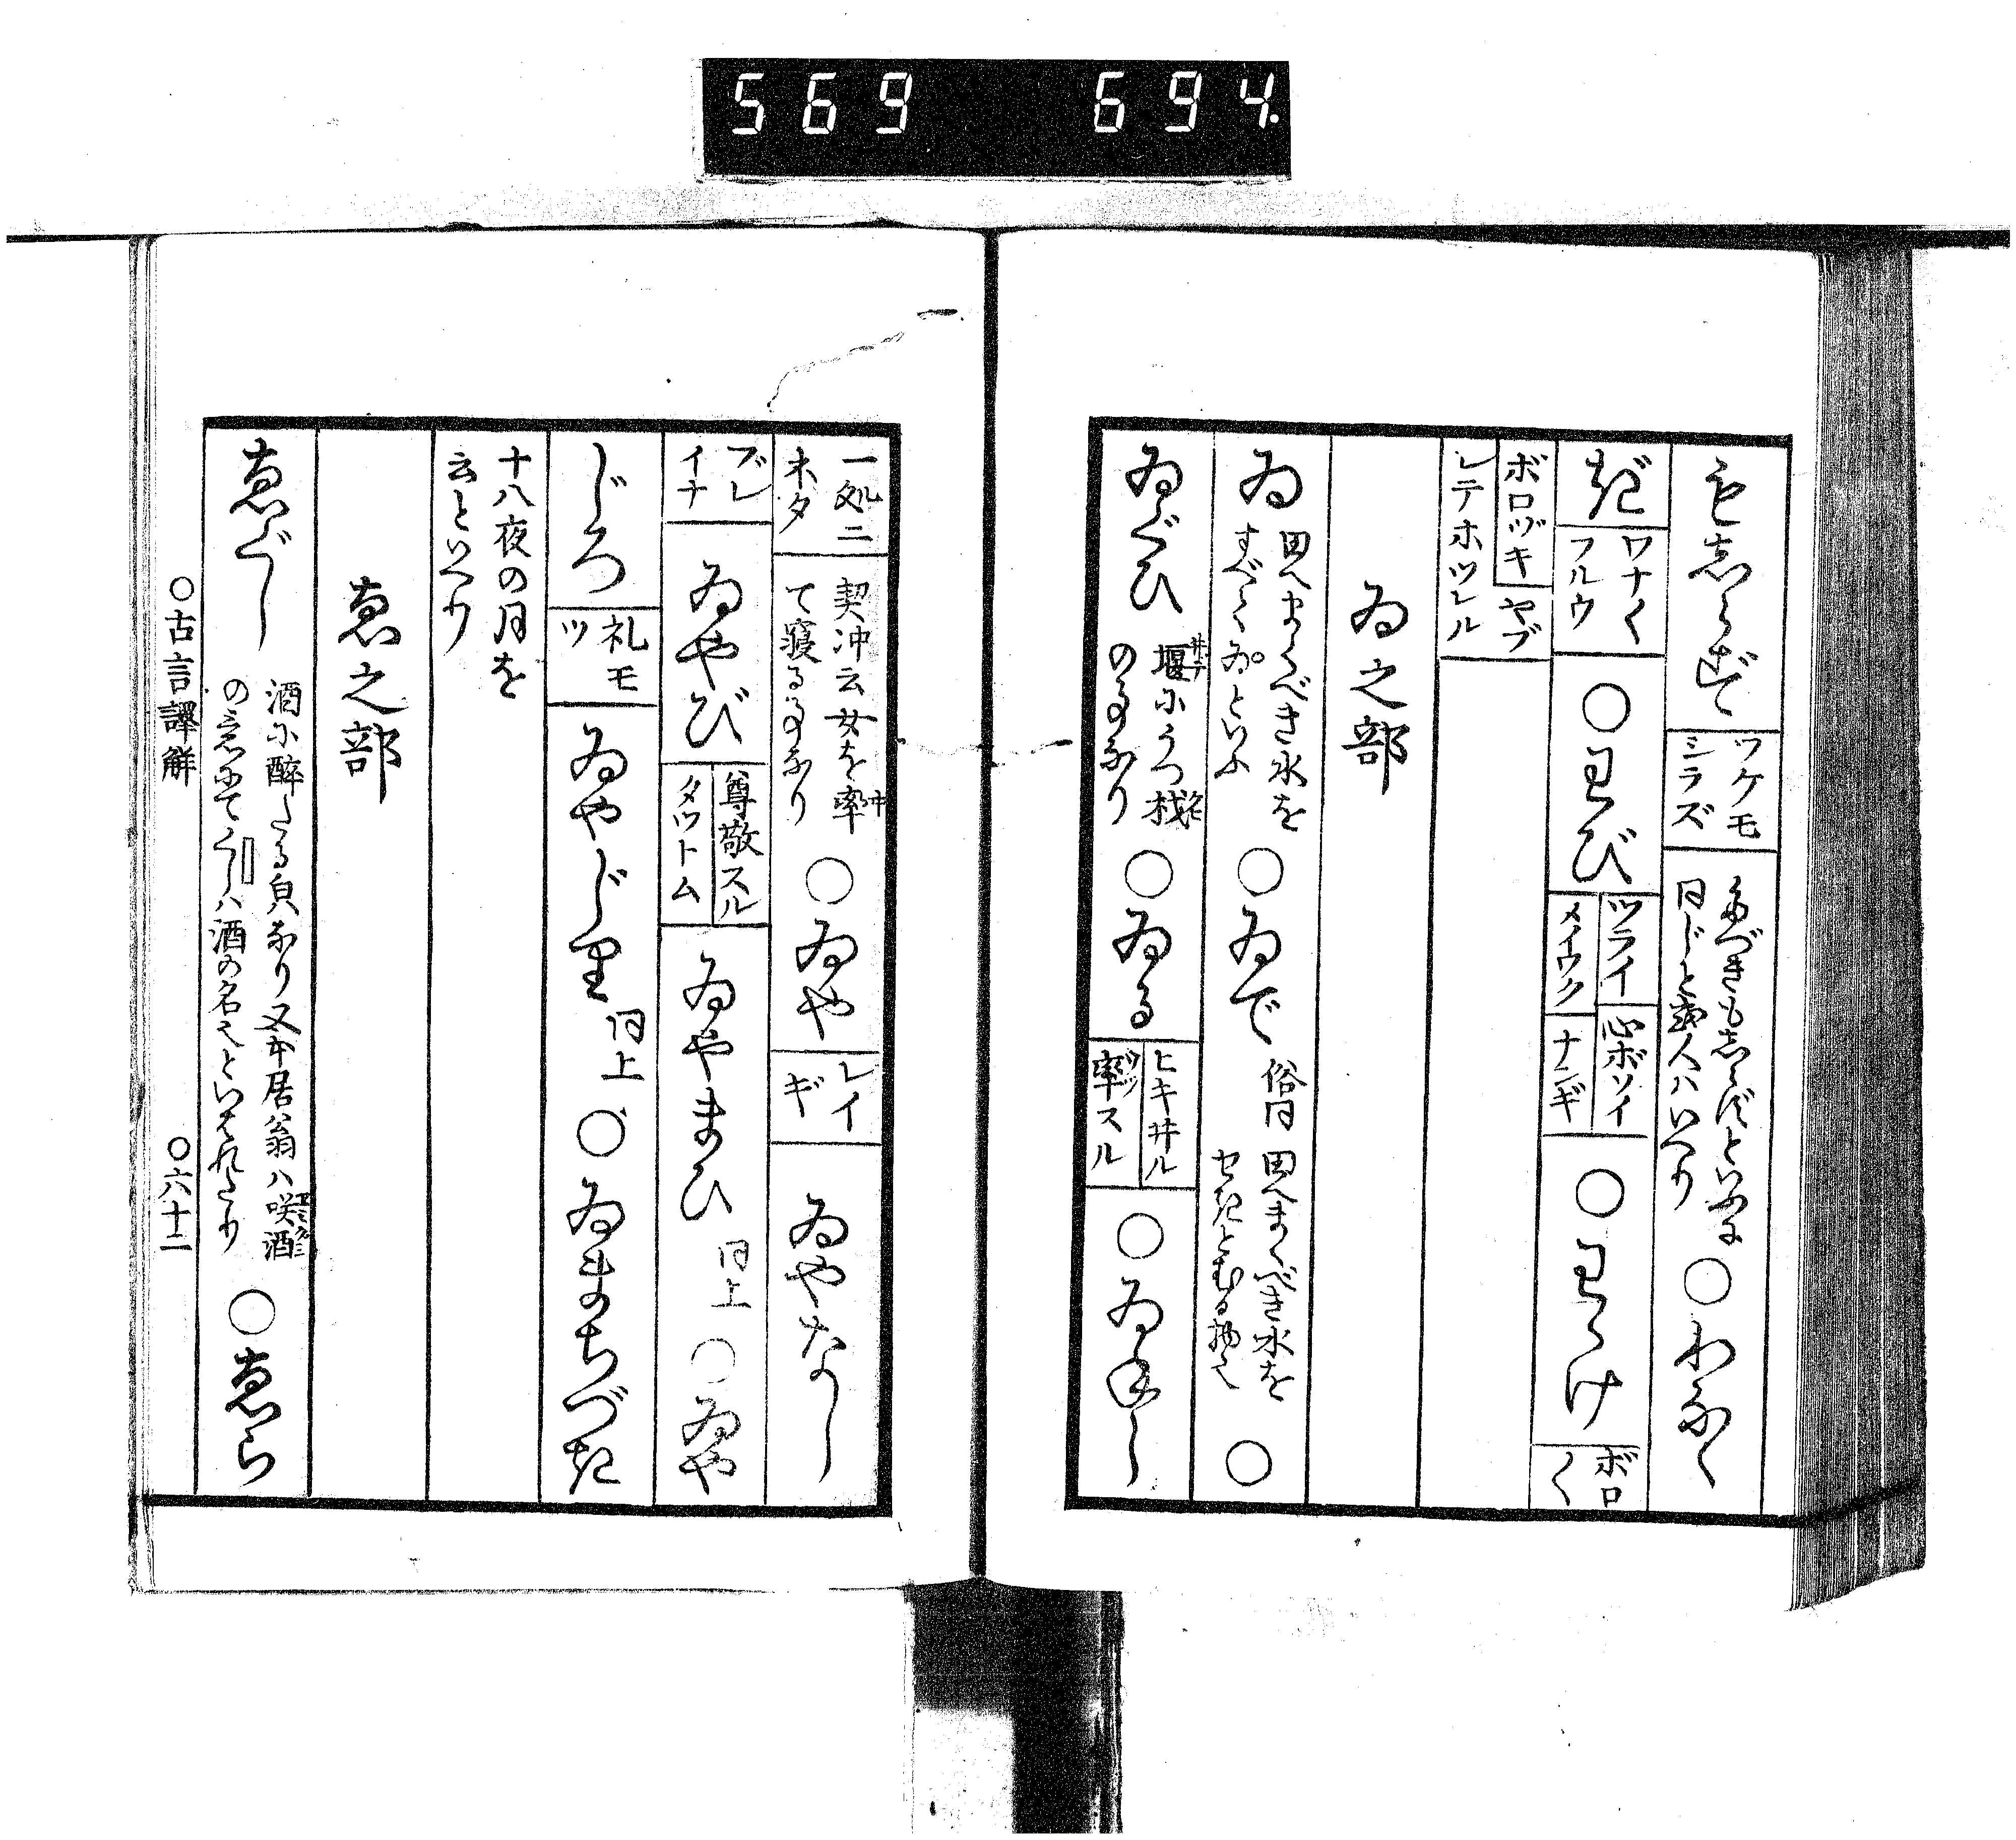 569 694.
もしらず ワケモシラズ たづきもしらずといふに同じと或人ハいへり ○わなゝ
き ワナ〱フルウ ○わび ツライ 心ボソイ メイワク ナンギ ○わゝけ ボロ〱
ボロヅキ ヤブレテホツレル
ゐ之部
ゐ 田へまくべき水をすべてゐといふ ○ゐで 俗同 田へまくべき水をせきとむる物也 ○
ゐぐひ 堰にうつ杙のことなり ○ゐる ヒキヰル 率スル ○ゐねし
一処ニネタ 契冲云女を率て寝ることなり ○ゐや レイギ ゐやなし
ブレイナ ゐやび 尊敬スル タツトム ゐやまひ 同上 ○ゐや
じろ 礼モツ ゐやじり 同上 ○ゐまちづき
十八夜の月を云といへり
ゑ之部
ゑぐし 酒に醉たる㒵なり 又本居翁ハ咲酒の意にてくしハ酒の名也といはれたり ○ゑら
○古言譯解 ○六十二